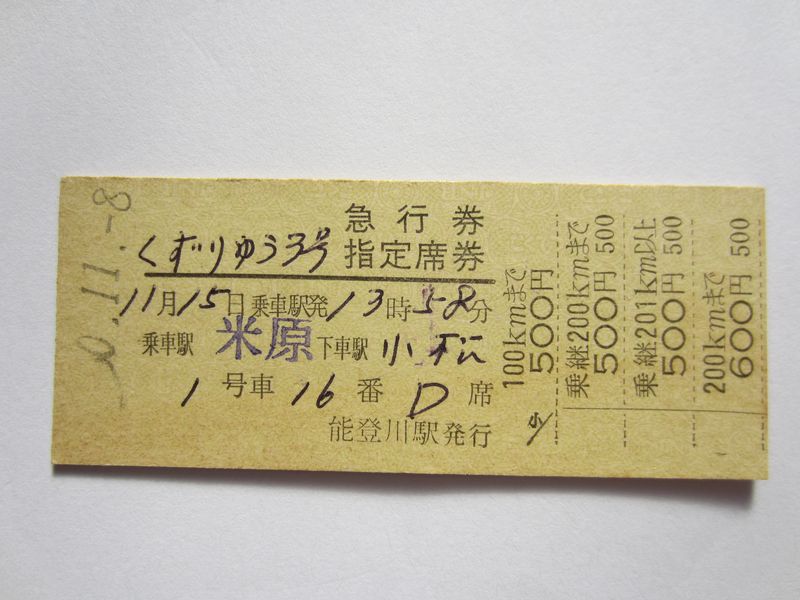 急行券
くずりゅう3号 指定席券
11月15日乗車駅発13時58分
乗車駅 米原 下車駅 小松
1号車16番D席
能登川駅発行
100kmまで
500円
乗継200kmまで
500円 500
乗継201km以上
500円 500
200kmまで
600円 500
0.11.-8